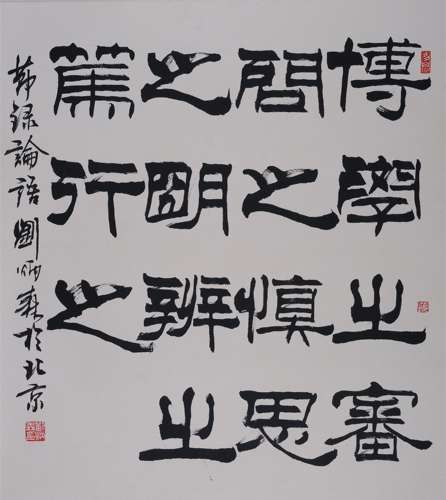 博學之審
問之慎思
之明辨之
篤行之
節録論語劉炳森於北京